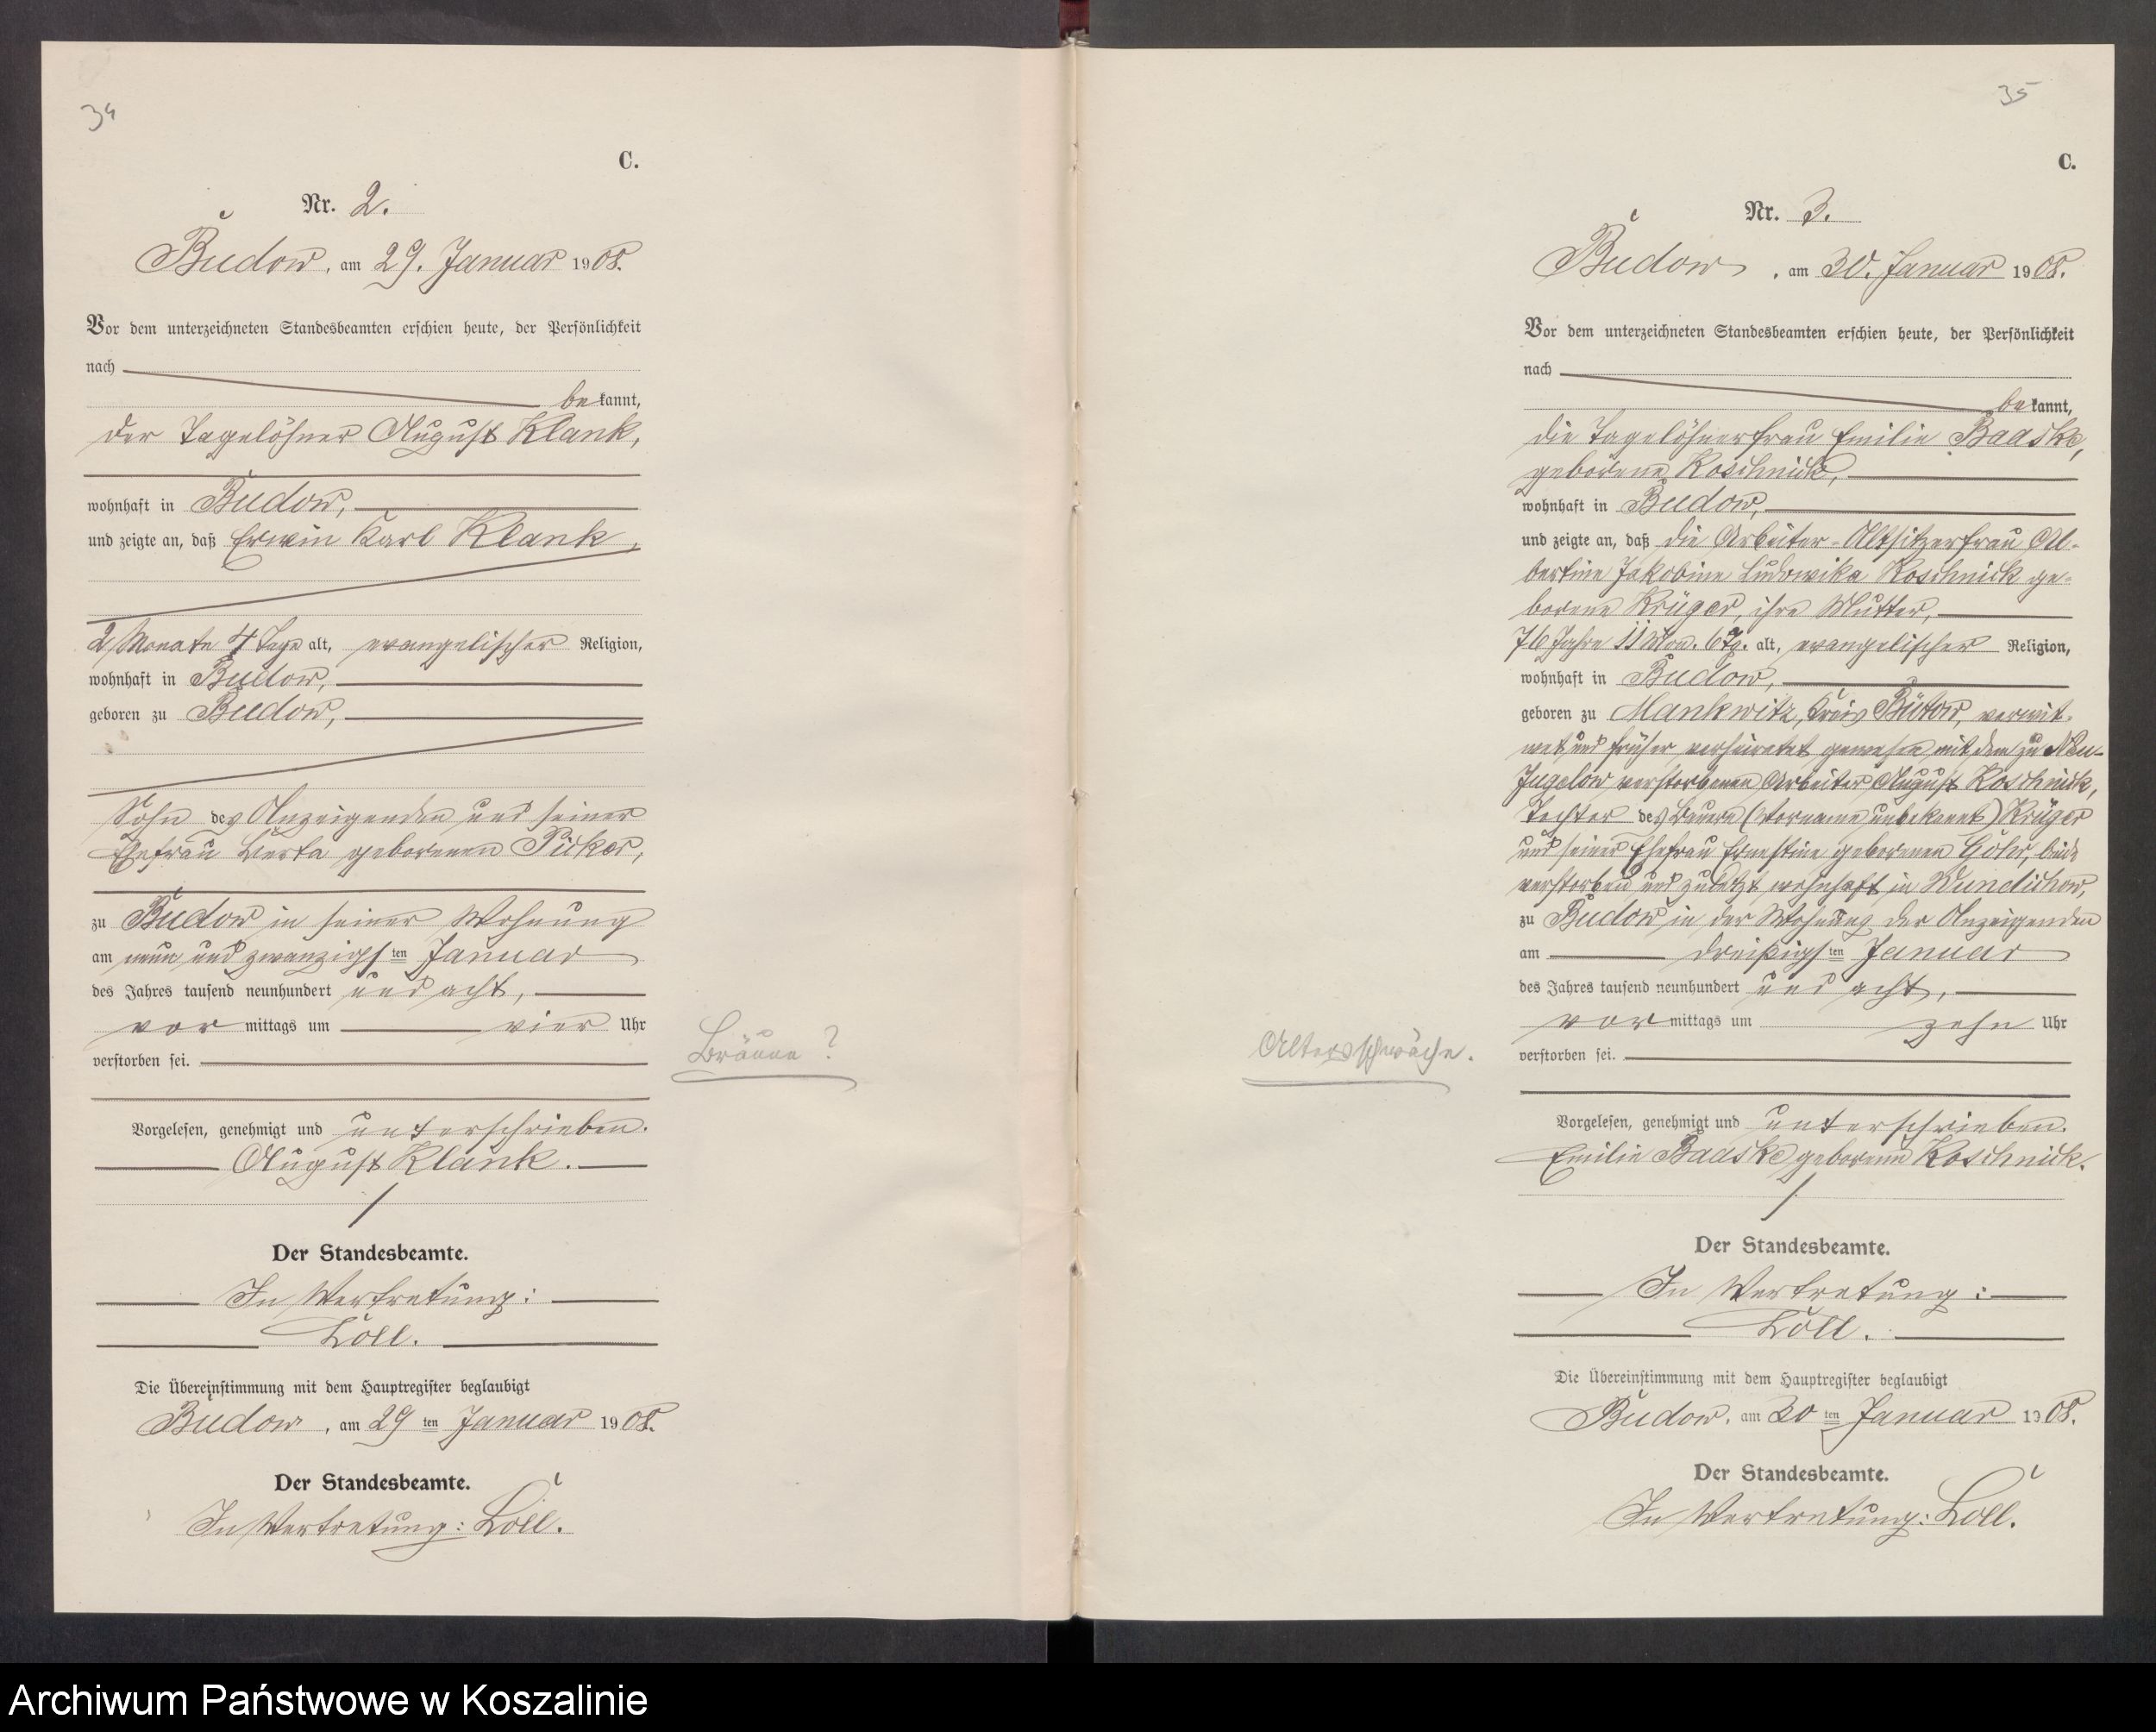 34
C.
Nr. 2.
Budow, am 29. Januar 1908.
Vor dem unterzeichneten Standesbeamten erschien heute, der Persönlichkeit
nach
bekannt,
der Tagelöhner August Klank,
wohnhaft in Budow,
und zeigte an, daß Erwin Karl Klank,
2 Monate 4 Tage alt, evangelischer Religion,
wohnhaft in Budow,
geboren zu Budow,
Sohn des Anzeigenden und seiner
Ehefrau Berta geborenen Picker,
zu Budow in seiner Wohnung
am neun und zwanzigsten Januar
des Jahres tausend neunhundert und acht,
vormittags um vier Uhr
verstorben sei.
Bräune?
Vorgelesen, genehmigt und unterschrieben.
August Klank.
Der Standesbeamte.
In Vertretung:
Löll.
Die Übereinstimmung mit dem Hauptregister beglaubigt
Budow, am 29ten Januar 1908.
Der Standesbeamte.
In Vertretung: Löll.
35
C.
Nr. 3.
Budow, am 30. Januar 1908.
Vor dem unterzeichneten Standesbeamten erschien heute, der Persönlichkeit
nach
bekannt,
die Tagelöhnerfrau Emilie Baaske,
geborene Koschnick,
wohnhaft in Budow,
und zeigte an, daß die Arbeiter-Altsitzerfrau Al-
bertine Jakobine Ludowika Koschnick ge-
borene Krüger, ihre Mutter,
76 Jahre 11 Mon. 6 Tg. alt, evangelischer Religion,
wohnhaft in Budow,
geboren zu Mankwitz, Kreis Bütow, verwit-
wet und früher verheiratet gewesen mit dem zu Neu-
Jugelow verstorbenen Arbeiter August Koschnick,
Tochter des Bauern (Vorname unbekannt) Krüger
und seiner Ehefrau Ernestine geborenen Göhr, beide
verstorben und zuletzt wohnhaft in Wundichow,
zu Budow in der Wohnung der Anzeigenden
am dreißigsten Januar
des Jahres tausend neunhundert und acht,
vormittags um zehn Uhr
verstorben sei.
Altersschwäche.
Vorgelesen, genehmigt und unterschrieben.
Emilie Baaske geborene Koschnick.
Der Standesbeamte.
In Vertretung:
Löll.
Die Übereinstimmung mit dem Hauptregister beglaubigt
Budow, am 30ten Januar 1908.
Der Standesbeamte.
In Vertretung: Löll.
Archiwum Państwowe w Koszalinie